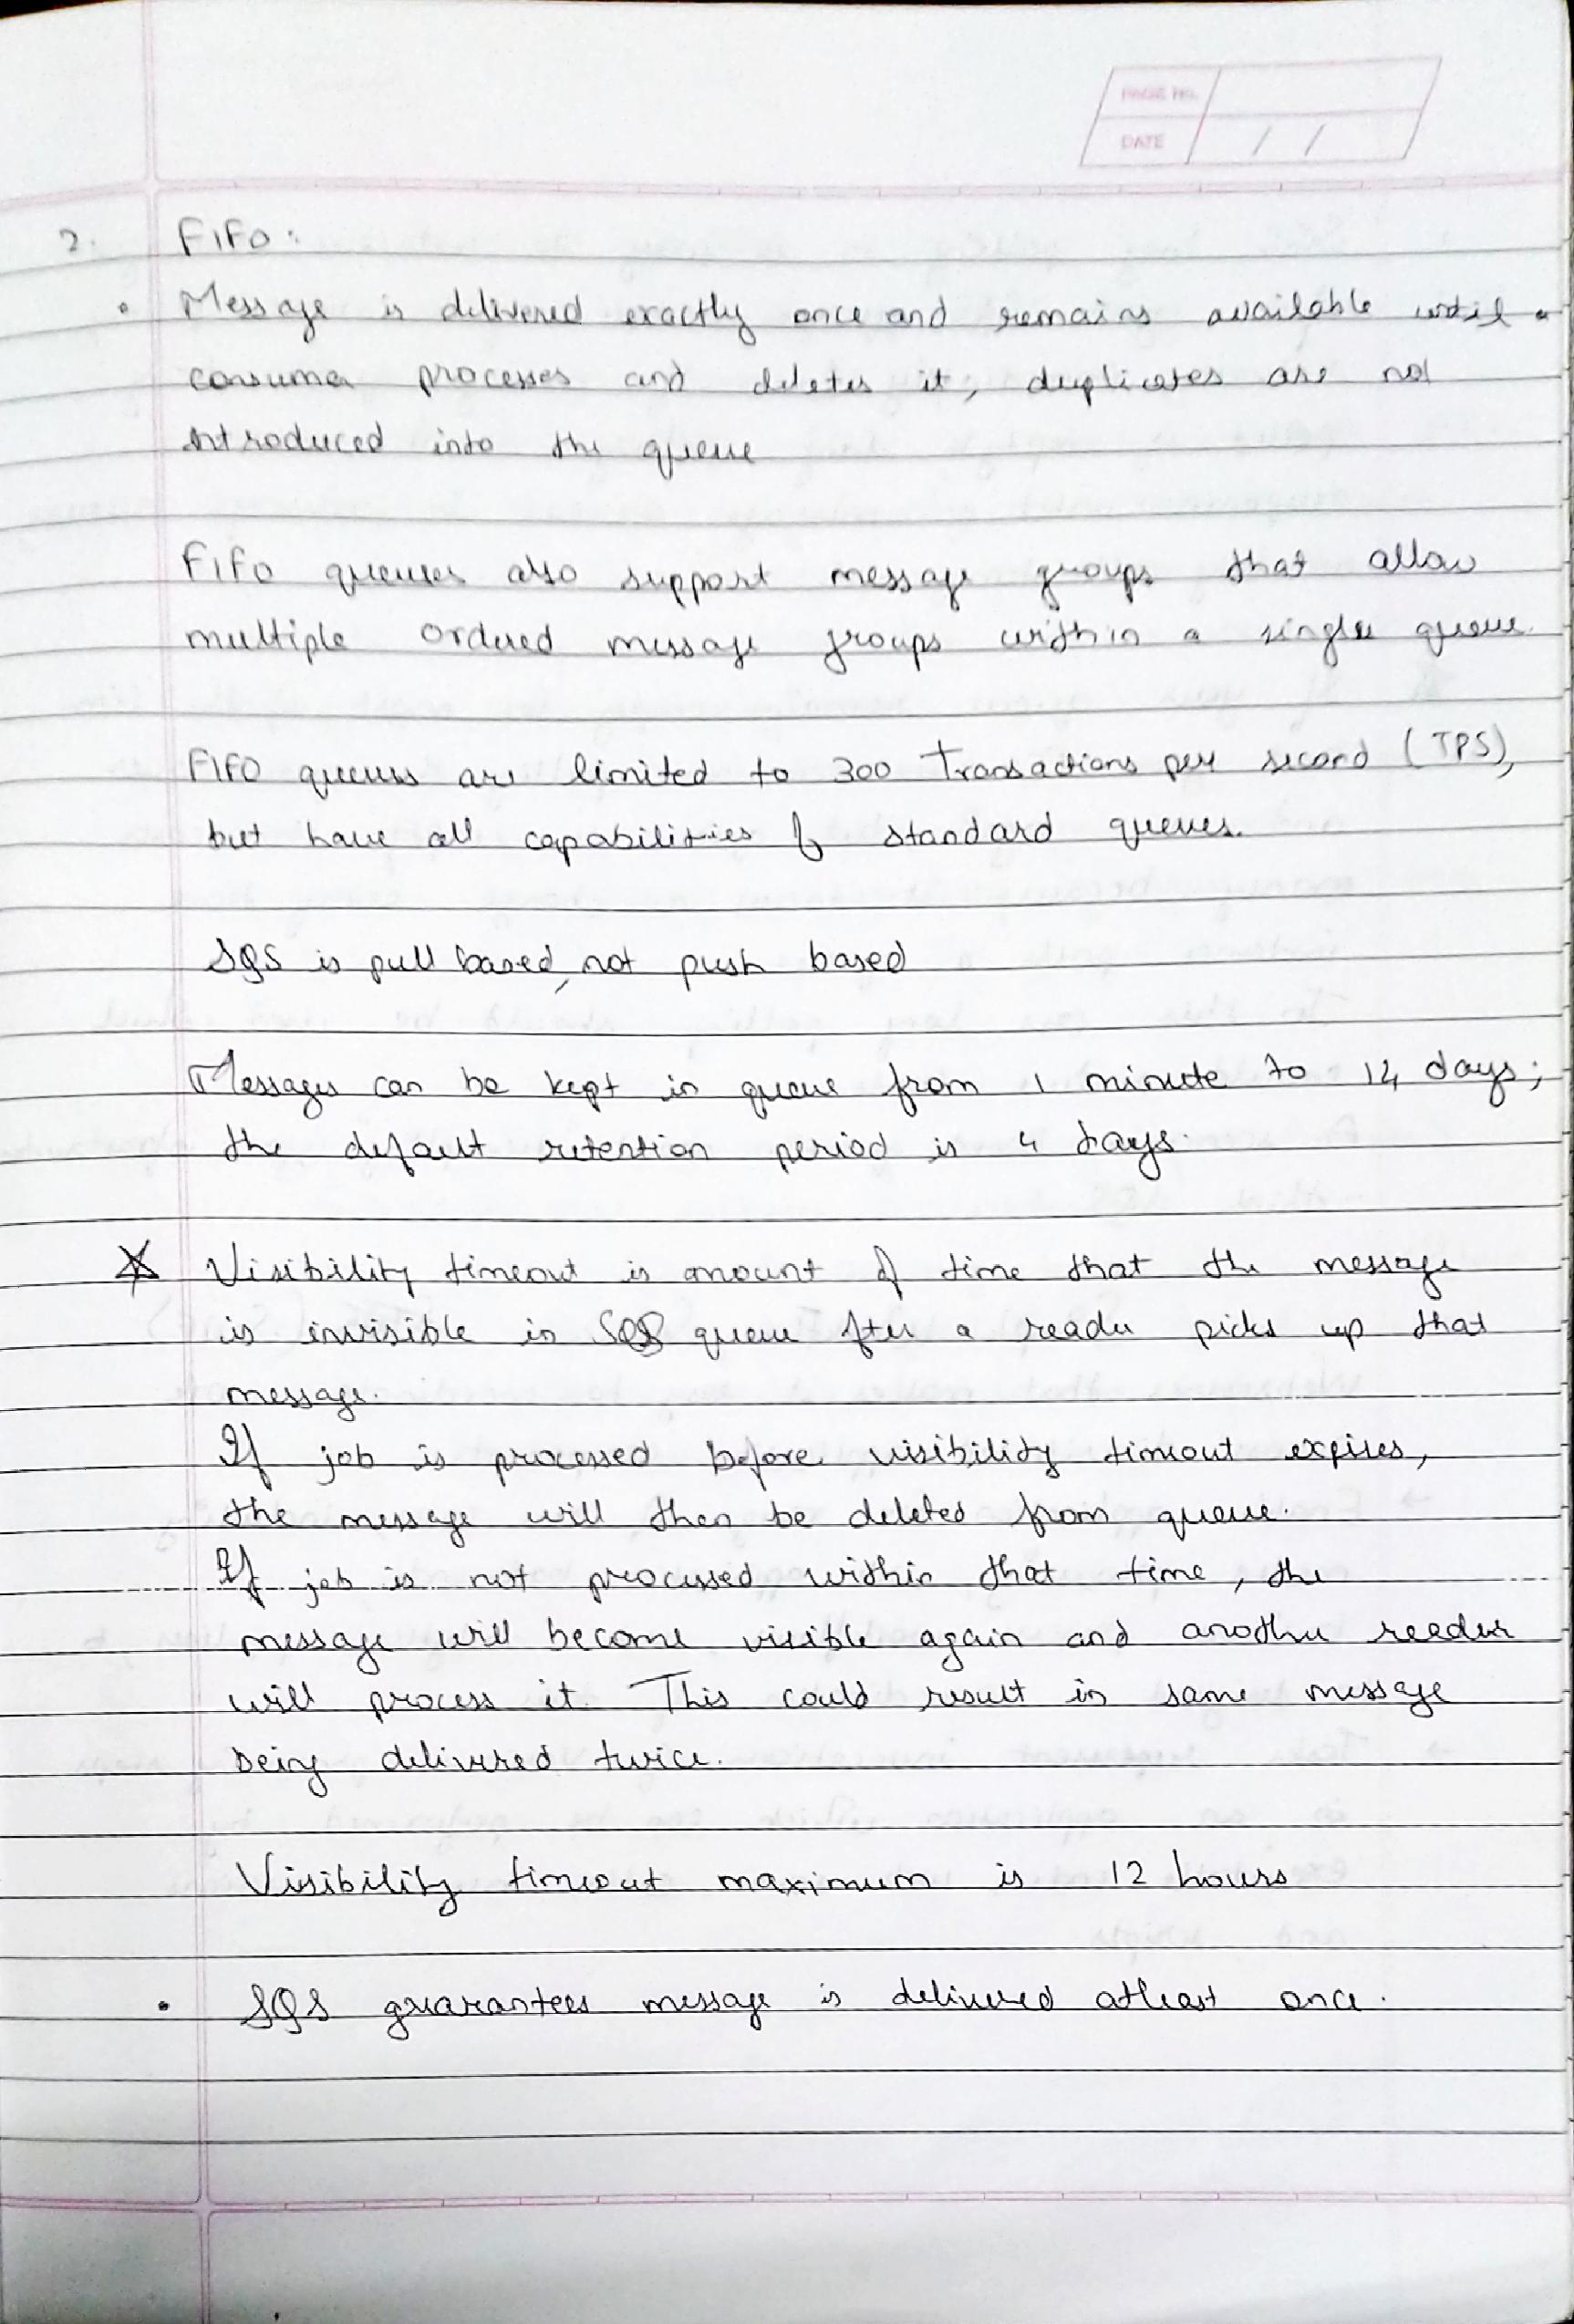 PAGE No.
DATE / /
2. FIFO:
• Message is delivered exactly once and remains available until a
consumer processes and deletes it, duplicates are not
introduced into the queue
FIFO queues also support message groups that allow
multiple ordered message groups within a single queue.
FIFO queues are limited to 300 Transactions per second (TPS),
but have all capabilities of standard queues.
SQS is pull based, not push based
Messages can be kept in queue from 1 minute to 14 days;
the default retention period is 4 days.
☆ Visibility timeout is amount of time that the message
is invisible in SQS queue after a reader picks up that
message.
If job is processed before visibility timeout expires,
the message will then be deleted from queue.
If job is not processed within that time, the
message will become visible again and another reader
will process it. This could result in same message
being delivered twice.
Visibility timeout maximum is 12 hours
• SQS guarantees message is delivered atleast once.